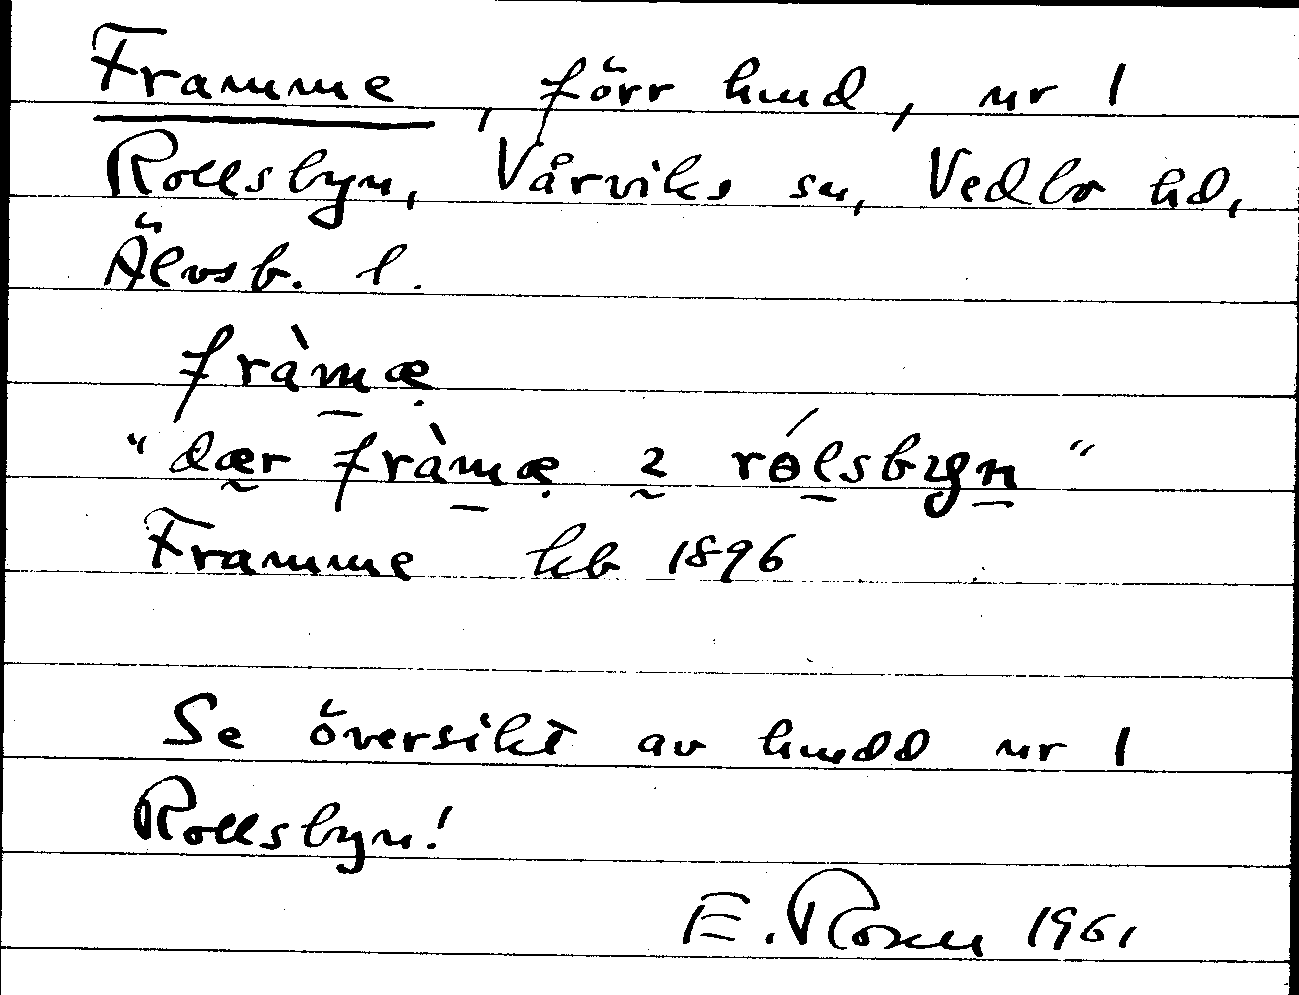 Framme, förr hmd, nr 1
Rollsbyn, Vårviks sn, Vedbo hd,
Älvsb. l.
fràm̱æ̣
"dær̰ fràm̱æ̣ 2̰ rѳ́ḻsbyṉ"
Framme hb 1896
Se översikt av hmdd nr 1
Rollsbyn!
E. Rosen 1961